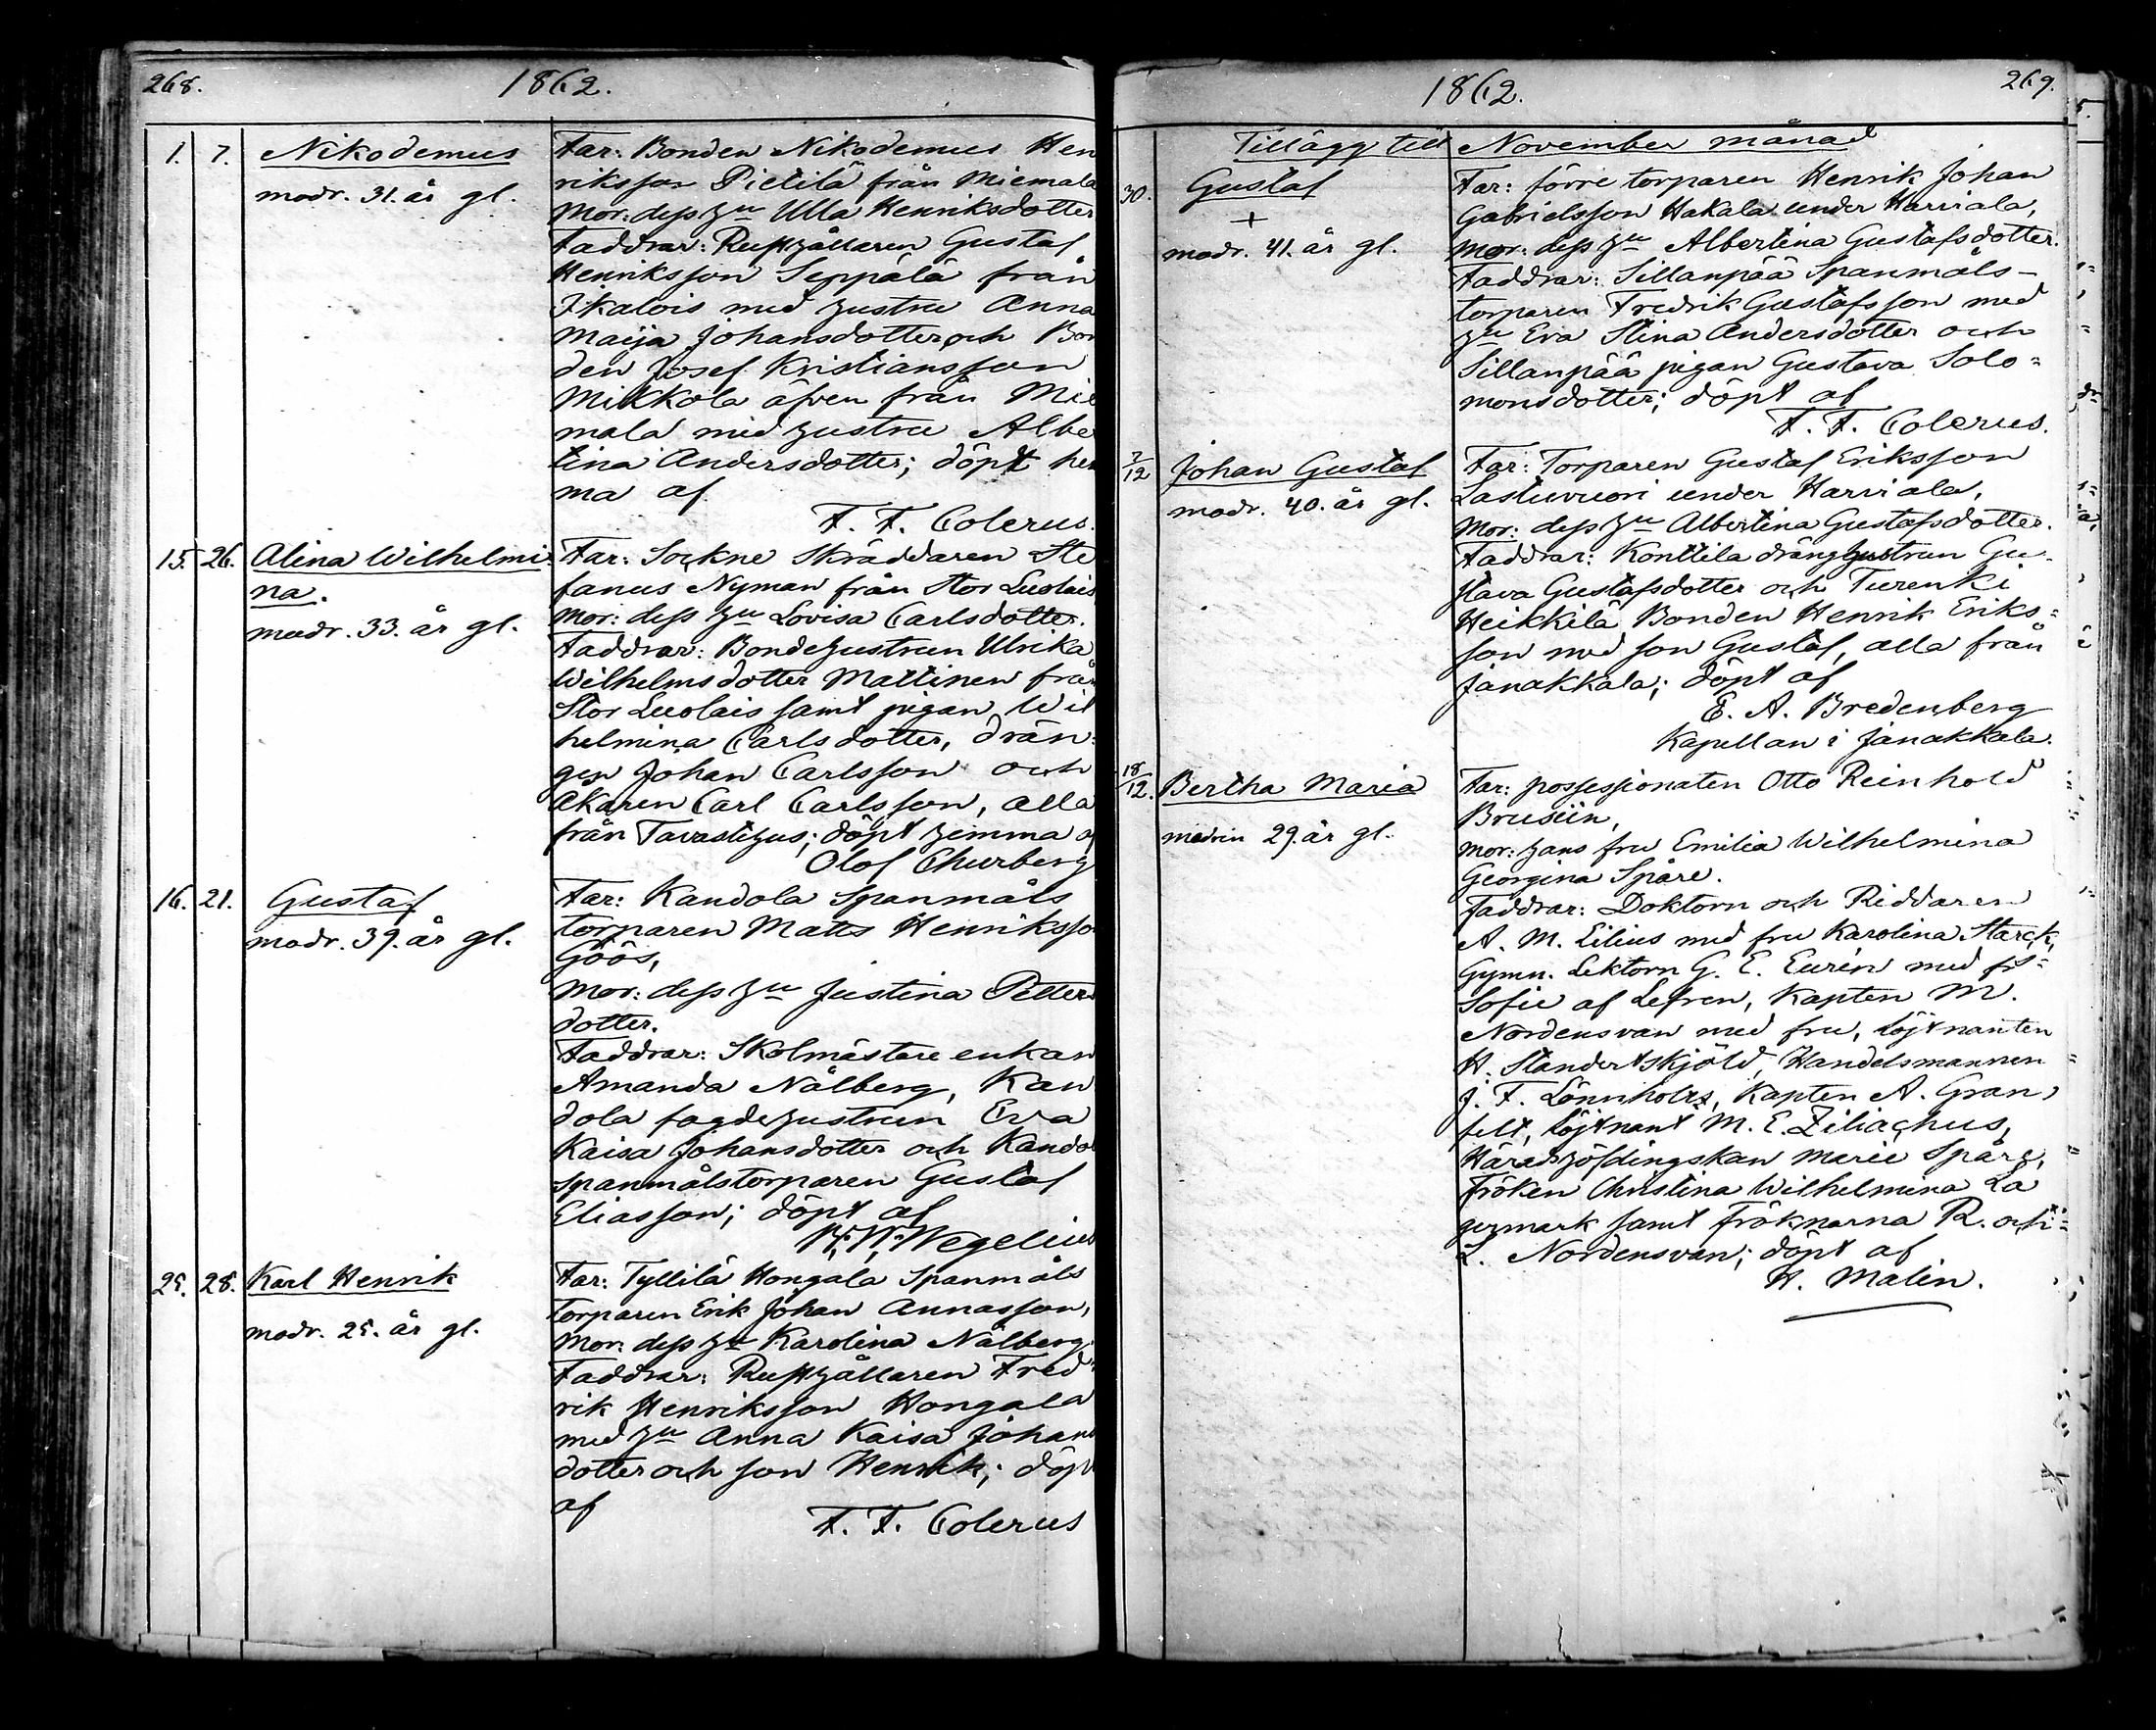 268.
1862.
1. 7. Nikodemus
modr. 31. år gl.
Far: Bonden Nikodemus Hen
riksson Pietilä från Miemala
Mor: dess hu Ulla Henriksdotter
Faddrar: Rusthållaren Gustaf
Henriksson Seppälä från
Ikalois med hustru Anna
Maija Johansdotter och Bon
den Josef Kristiansson
Mikkola äfven från Mie
mala med hustru Albe
tina Andersdotter; döpt hem
ma af
F. F. Colerus.
15. 26. Alina Wilhelmi
na.
modr. 33. år gl.
Far: Sockne Skräddaren Ste
fanus Nyman från Stor Luolais
Mor: dess hu Lovisa Carlsdotter.
Faddrar: Bondehustrun Ulrika
Wilhelmsdotter Mattinen från
Stor Luolais samt pigan Wil
helmina Carlsdotter, drän-
gen Johan Carlsson och
Åkaren Carl Carlsson, alla
från Tavastehus; döpt hemma af
Olof Churberg
16. 21. Gustaf
modr. 39. år gl.
Far: Kandola Spanmåls
torparen Matts Henriksso
Göös,
Mor: dess hu Justina Petters
dotter.
Faddrar: Skolmästare enkan
Amanda Nålberg, Kan
dola fogdehustrun Eva
Kaisa Johansdotter och Kandol
spanmålstorparen Gustaf
Eliasson; döpt af
Wegelius
25. 28. Karl Henrik
modr. 25. år gl.
Far: Tyllilä Hongala Spanmåls
torparen Erik Johan Annasson,
Mor: dess hu Karolina Nålberg.
Faddrar: Rusthållaren Fred
rik Henriksson Hongala
med hu Anna Kaisa Johans
dotter och son Henrik; döpt
af
F. F. Colerus
1862.
269.
Tillägg till November månad
30. Gustaf
+
modr. 41. år gl.
Far: förre torparen Henrik Johan
Gabrielsson Hakala under Harviala,
Mor: dess hu Albertina Gustafsdotter.
Faddrar: Sillanpää Spanmåls-
torparen Fredrik Gustafsson med
hu Eva Stina Andersdotter och
Sillanpää pigan Gustava Solo=
monsdotter; döpt af
F. F. Colerus.
7/12 Johan Gustaf
modr. 40. år gl.
Far: Torparen Gustaf Eriksson
Lastuvuori under Harviala,
Mor: dess hu Albertina Gustafsdotter.
Faddrar: Konttila dränghustrun Gu-
stava Gustafsdotter och Turenki
Heikkilä Bonden Henrik Eriks=
son med son Gustaf, alla från
Janakkala; döpt af
E. A. Bredenberg
Kapellan i Janakkala.
18/12. Bertha Maria
modren 29. år gl.
Far: possessionaten Otto Reinhold
Brusiin,
Mor: hans fru Emilia Wilhelmina
Georgina Spåre.
Faddrar: Doktorn och Riddaren
A. M. Eilius med fru Karolina Starck,
Gymn. Lektorn G. E. Eurén med fr=
Sofie af Lefren, Kapten M.
Nordensvan med fru, Löjtnanten
H. Standertskjöld, Handelsmannen
J. F. Lönnholtz, Kapten A. Gran,
felt, Löjtnant M. E. Ziliachus,
Häradshöfdingskan Marie Spåre,
Fröken Christina Wilhelmina La
germark samt Fröknarna R. och
L. Nordensvan; döpt af
H. Malin.